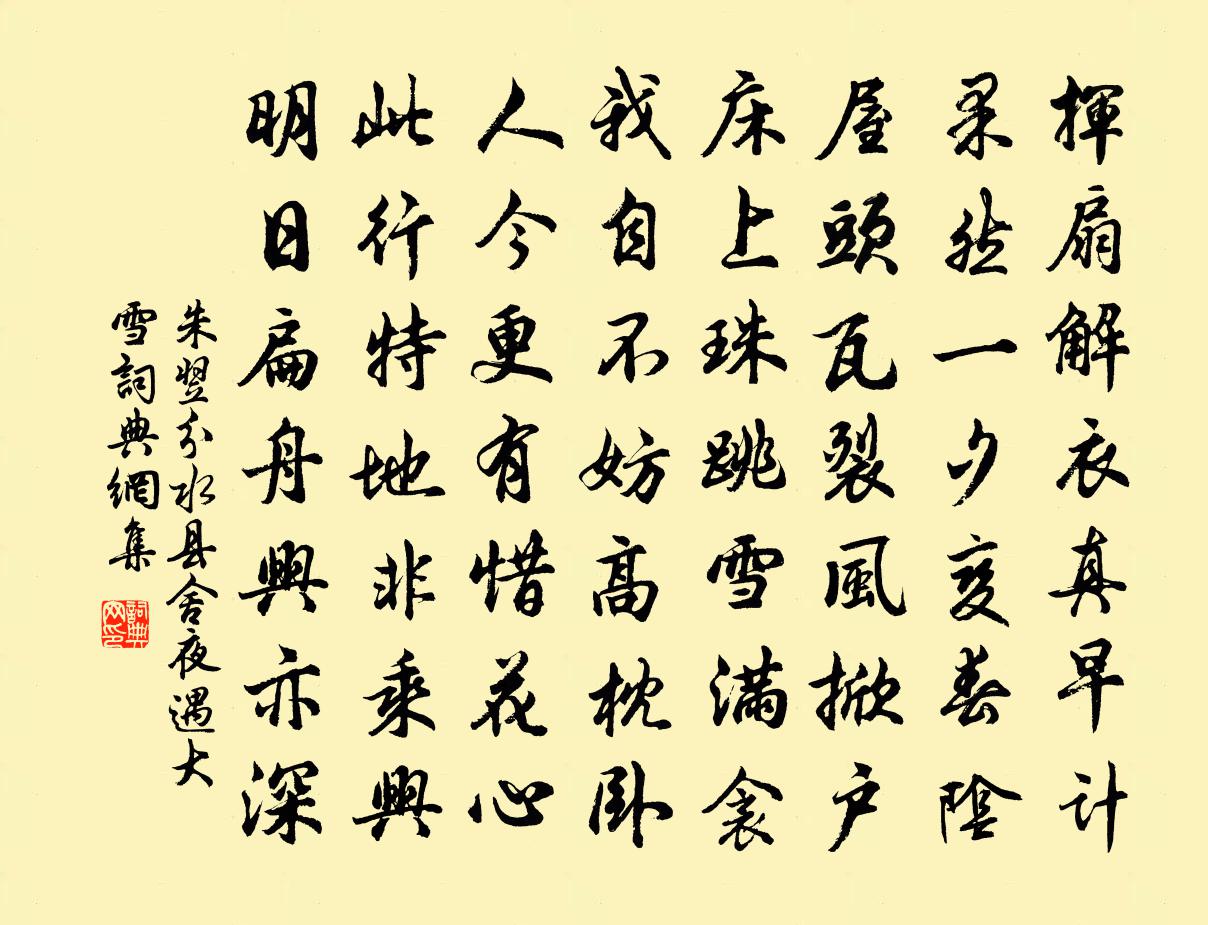 揮扇解衣真早计
果然一夕変春陰
屋頭瓦裂風掀户
床上珠跳雪满衾
我自不妨高枕卧
人今更有惜花心
此行特地非乘興
明日扁舟興亦深
朱翌分水县舍夜遇大
雪詞典網集
詞典
网印